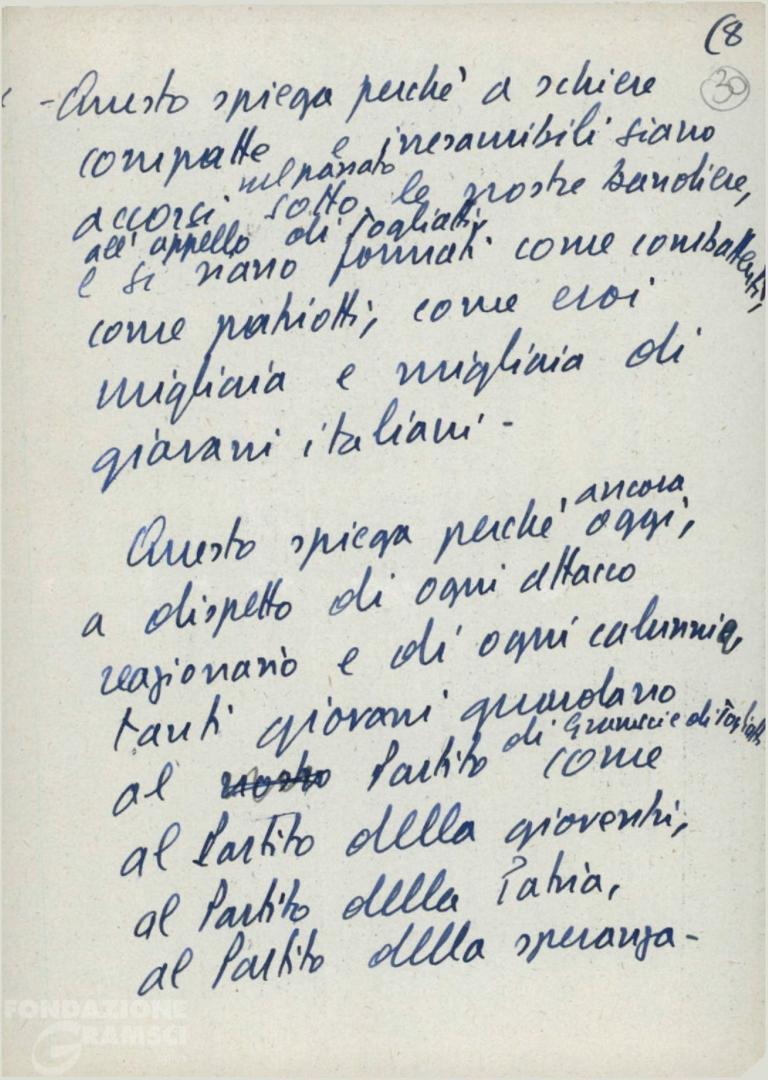 (8
30
- Questo spiega perché a schiere
compatte e inesauribili siano
nel passato
accorsi sotto le nostre bandiere,
all'appello di Togliatti,
e si siano formati come combattenti,
come patriotti, come eroi
migliaia e migliaia di
giovani italiani -
ancora
Questo spiega perché oggi,
a dispetto di ogni attacco
reazionario e di ogni calunnia,
tanti giovani guardano
di Gramsci e di Togliatti
al nostro Partito come
al Partito della gioventù,
al Partito della Patria,
al Partito della speranza -
FONDAZIONE
GRAMSCI